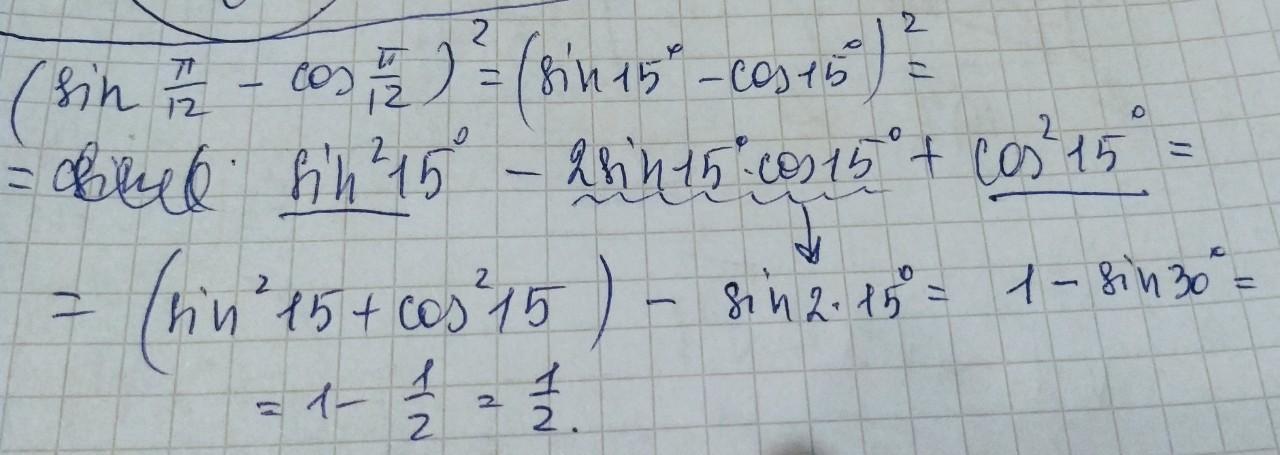 (sin π/12 − cos π/12)² = (sin 15° − cos 15°)² =
= sin²15° − 2sin15°·cos15° + cos²15° =
= (sin²15 + cos²15) − sin2·15° = 1 − sin30° =
= 1 − 1/2 = 1/2.